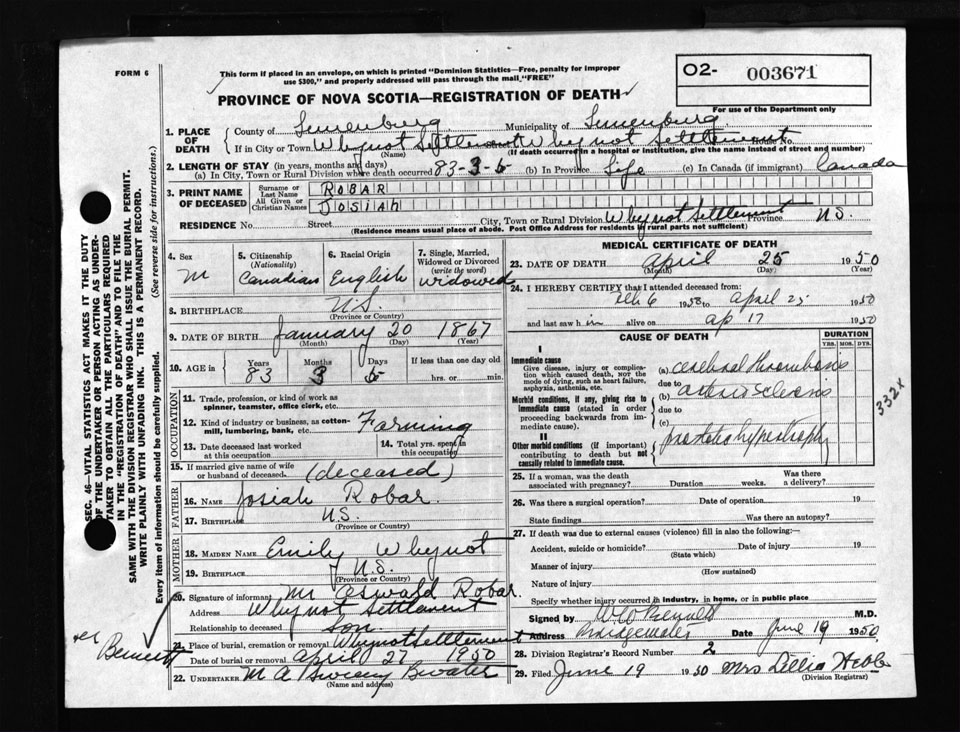 FORM 6
This form if placed in an envelope, on which is printed "Dominion Statistics—Free, penalty for improper
use $300," and properly addressed will pass through the mail "FREE"
O2- 003671
For use of the Department only
PROVINCE OF NOVA SCOTIA—REGISTRATION OF DEATH
1. PLACE OF DEATH
County of Lunenburg Municipality of Lunenburg
If in City or Town Whynot Settlement Whynot Settlement House No.
(Name) (If death occurred in a hospital or institution, give the name instead of street and number)
2. LENGTH OF STAY (in years, months and days)
(a) In City, Town or Rural Division where death occurred 83-3-5 (b) In Province Life (c) In Canada (if immigrant) Canada
3. PRINT NAME OF DECEASED
Surname or Last Name ROBAR
All Given or Christian Names JOSIAH
RESIDENCE No. Street City, Town or Rural Division Whynot Settlement Province N.S.
(Residence means usual place of abode. Post Office Address for residents of rural parts not sufficient)
4. Sex M
5. Citizenship (Nationality) Canadian
6. Racial Origin English
7. Single, Married, Widowed or Divorced (write the word) Widowed
8. BIRTHPLACE N.S.
(Province or Country)
9. DATE OF BIRTH January 20 1867
(Month) (Day) (Year)
10. AGE in Years 83 Months 3 Days 5 If less than one day old
hrs. or min.
OCCUPATION
11. Trade, profession, or kind of work as
spinner, teamster, office clerk, etc.
12. Kind of industry or business, as cotton-
mill, lumbering, bank, etc. Farming
13. Date deceased last worked
at this occupation
14. Total yrs. spent
in this occupation
15. If married give name of wife
or husband of deceased. (deceased)
FATHER
16. NAME Josiah Robar.
17. BIRTHPLACE N.S.
(Province or Country)
MOTHER
18. MAIDEN NAME Emily Whynot
19. BIRTHPLACE N.S.
(Province or Country)
20. Signature of informant Mr Oswald Robar.
Address Whynot Settlement
Relationship to deceased Son.
21. Place of burial, cremation or removal Whynot Settlement
Date of burial or removal April 27 1950
22. UNDERTAKER M A Bwater
(Name and address)
MEDICAL CERTIFICATE OF DEATH
23. DATE OF DEATH April 25 1950
(Month) (Day) (Year)
24. I HEREBY CERTIFY that I attended deceased from:
Feb 6 1950 to April 25 1950
and last saw him alive on Ap 17 1950
CAUSE OF DEATH
DURATION
YRS. MOS. DYS.
I
Immediate cause
Give disease, injury or complica-
tion which caused death, not the
mode of dying, such as heart failure,
asphyxia, asthenia, etc.
(a) cerebral thrombosis
due to
Morbid conditions, if any, giving rise to
immediate cause (stated in order
proceeding backwards from im-
mediate cause).
(b) arteriosclerosis
due to
(c)
II
Other morbid conditions (if important)
contributing to death but not
causally related to immediate cause.
prostatic hypertrophy
332X
25. If a woman, was the death
associated with pregnancy? Duration weeks. Was there
a delivery?
26. Was there a surgical operation? Date of operation 19
State findings Was there an autopsy?
27. If death was due to external causes (violence) fill in also the following:—
Accident, suicide or homicide? Date of injury 19
(State which)
Manner of injury
(How sustained)
Nature of injury
Specify whether injury occurred in industry, in home, or in public place
Signed by M.D.
Address Bridgewater Date June 19 1950
28. Division Registrar's Record Number 2
29. Filed June 19 1950 Mrs Lillia Hebb
(Division Registrar)
SEC. 46—VITAL STATISTICS ACT MAKES IT THE DUTY
OF THE UNDERTAKER OR PERSON ACTING AS UNDER-
TAKER TO OBTAIN ALL THE PARTICULARS REQUIRED
IN THE "REGISTRATION OF DEATH" AND TO FILE THE
SAME WITH THE DIVISION REGISTRAR WHO SHALL ISSUE THE BURIAL PERMIT.
WRITE PLAINLY WITH UNFADING INK. THIS IS A PERMANENT RECORD.
Every item of information should be carefully supplied. (See reverse side for instructions.)
Bennett